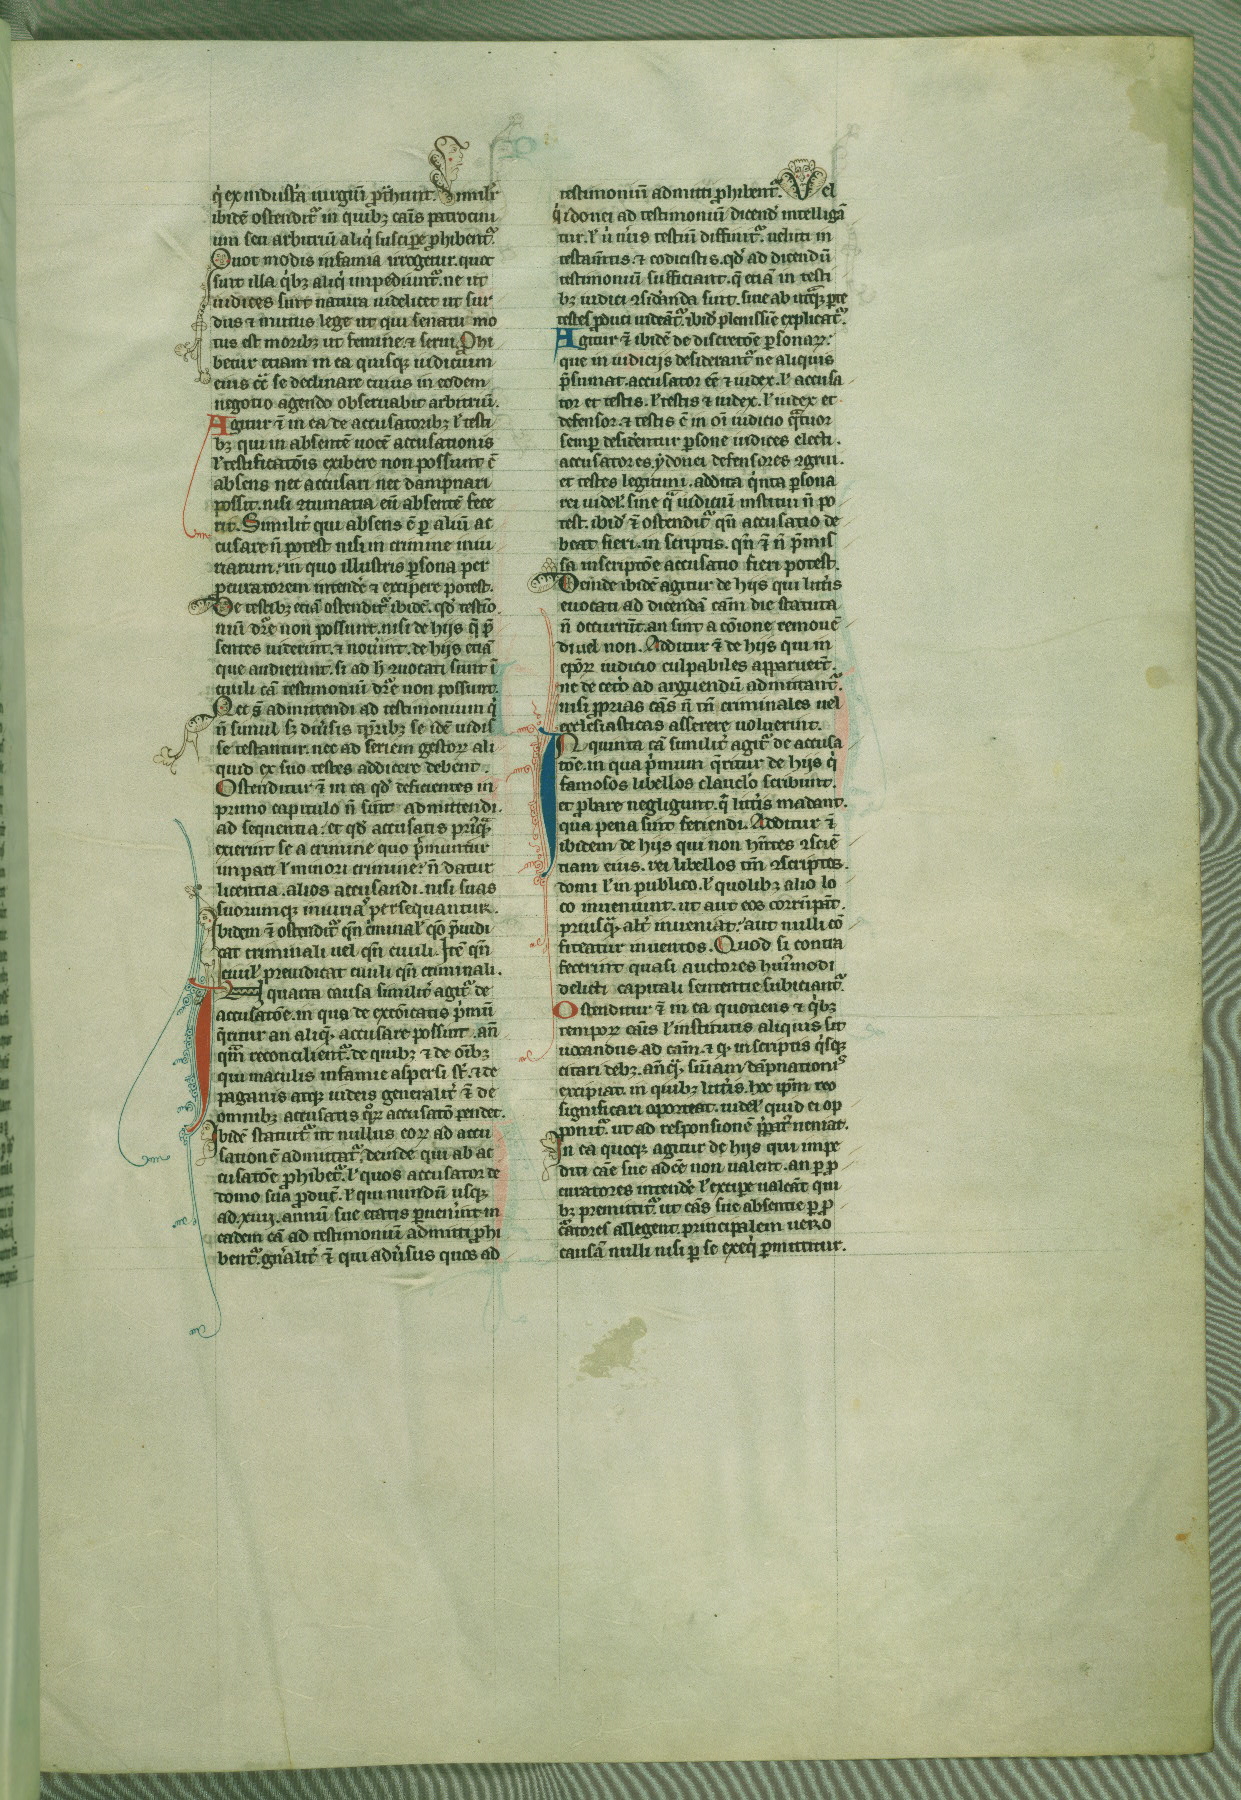 q̇ ex industͥa uirgiū ꝓͥhiunt. Simliͬ
ibidē ostenditᷣ in quibꝫ cāis patrocini
um seu arbitriū aliq̇ suscipe ꝓhibentᷣ.
Quot modis infamia irrogetur. quot
sunt illa q̇bꝫ aliq̇ impediuntᷣ. ne ut
iudices sunt natura uidelicet ut sur
dus ⁊ mutus lege ut qui senatu mo
tus est moribꝫ ut femine ⁊ serui. Phi
betur etiam in ea quisqꝫ iudicium
eius cc̄ se declinare cuius in eodem
negotio agendo obseruabit arbitriū.
Agitur ⁊̄ in ea de accusatoribꝫ l' testi
bꝫ qui in absentē uocē accusationis
l' testificatōis exibere non possunt ē
absens nec accusari nec dampnari
possit. nisi ꝯtumatia eū absentē fece
rit. Similit̉ qui absens ē ꝑ aliū ac
cusare n̄ potest nisi in crimine iniu
riarum. in quo illustris ꝑsona per
ꝓcuratorem intend̉e ⁊ excipere potest.
De testibꝫ etiā ostenditᷣ ibidē. qd̓ testīo
niū dr̄e non possunt. nisi de hijs q̄ p̄
sentes uiderunt. ⁊ nou̇unt. de hijs etiā
que audierunt. si ad h̓ ꝯuocati sunt ī
ciuili cā testimoniū dr̄e non possunt.
Nec g̊ admittendi ad testimonium q̇
n̄ simul sꝫ diu̇sis tp̄ribꝫ se idē uidis
se testantur. nec ad seriem gestoꝝ ali
quid ex suo testes addicere debent.
Ostenditur ⁊̄ in ea qd̓ deficientes in
primo capitulo n̄ sunt admittendi.
ad sequentia. et qd̓ accusatis priꝰqᷓ
exierint se a crimine quo p̄muntur
impari l' minori crimine. n̄ datur
licentia. alios accusandi. nisi suas
suorumqꝫ iniuriaˢ persequantur.
Ibidem ⁊̄ ostenditᷣ qn̄ ciminaľ qō p̄iudi
cat criminali uel qn̄ ciuili. Itē qn̄
ciuiľ preiudicat ciuili qn̄ criminali.
In quarta causa similit̉ agitᷣ de
accusatōe. in qua de exc̄oicatis p̄mū
q̄ritur an aliqͦs accusare possint. an̄
qm̄ reconcilientᷣ. de quibꝫ ⁊ de oībꝫ
qui maculis infamie aspersi sᵗ. ⁊ de
paganis atqꝫ iudeis generalit̉ ⁊̄ de
omnibꝫ accusatis qͦꝝ accusatō pendet.
Ibidē statuitᷣ ut nullus eoꝝ ad accu
sationē admittatᷣ. deinde qui ab ac
cusatōe ꝓhibetᷣ. l' quos accusator de
domo sua ꝓduc̄. l' qui nundū usqꝫ
ad .xiiij. annū sue etatis ꝑuenerint in
eadem cā ad testimoniū admitti ꝓhi
bentᷣ. gn̄alit̉ ⁊̄ qui adu̇sus quos ad
testimoniū admitti ꝓhibentᷣ. Vel
q̇ idonei ad testimoniū dicend̓ intelligā
tur. l' ū nūis testiū diffinitᷣ. ueluti in
testam̄tis. ⁊ codicillis. qd̓ ad dicendū
testimoniū sufficiant. q̄ etiā in testi
bꝫ iudici ꝯsid̉anda sunt. siue ab utᷓqꝫ ꝑte
testes ꝓduci uideātᷣ. ibid̓ plenissīe explicatᷣ.
Agitur ⁊̄ ibidē de discretōe ꝑsonaꝝ.
que in iudicijs desiderantᷣ ne aliquis
p̄sumat. accusator eē ⁊ iudex. l' accusa
tor et testis. l' testis ⁊ iudex. l' iudex et
defensor. ⁊ testis ē in oī iudicio qᷓtuor
semꝑ desid̉entur ꝑsone iudices electi.
accusatores ydonei defensores ꝯgrui.
et testes legitimi. addita q̇nta ꝑsona
rei uideľ. sine qᷓ iudiciū institui n̄ po
test. ibid̓ ⁊̄ ostenditᷣ qn̄ accusatio de
beat fieri. in scriptis. qn̄ ⁊̄ n̄ p̄mis
sa inscriptōe accusatio fieri potest.
Deinde ibidē agitur de hijs qui litt̉is
euocati ad dicendā cām die statuta
n̄ occurrūt. an sint a cōione remouē
di uel non. Additur ⁊̄ de hijs qui in
ep̄oꝝ iudicio culpabiles apparuer̄t.
ne de cet̉o ad arguendū admittantᷣ.
nisi ꝓprias cās n̄ tn̄ criminales uel
ecclesiasticas asserere uoluerint.
In quinta cā similit̉ agitᷣ de accusa
tōe. in qua p̄mum q̄ritur de hijs q̇
famosos libellos clanclo̓ scribunt.
et ꝓbare negligunt. q̄ litt̉is mādant.
qua pena sint feriendi. Additur ⁊̄
ibidem de hijs qui non hn̄tes ꝯsciē
tiam eius. rei libellos tm̄ ꝯscriptos.
domi l' in publico. l' quolibꝫ alio lo
co inueniunt. ut aut eos corrūpāt.
priusqᷓ alt̉ inueniat. aut nulli cō
fiteatur inuentos. Quod si contra
fecerint quasi auctores huīmodi
delicti capitali sententie subiciantᷣ.
Ostenditur ⁊̄ in ea quotiens ⁊ q̇bꝫ
tempoꝝ cāis l' institutis aliquis sit
uocandus ad cām. ⁊ qͥ inscriptis q̇sqꝫ
citari debꝫ. an̄qͣ sīniam dāpnationiˢ
excipiat. in quibꝫ litt̉is. hoc ip̄m reo
significari oportest. uideľ quid ei op
ponitᷣ. ut ad responsionē p̄patᷣ ueniat.
In ea quoqꝫ agitur de hijs qui impe
diti cāe sue adeē non ualent. an ꝑ ꝓ
curatores intend̉e l' excipe ualeāt qui
bꝫ premittitᷣ ut cās sue absentie ꝑ ꝓ
cᷓtores allegent. principalem uero
causā nulli nisi ꝑ se exeq̇ ꝑmittitur.